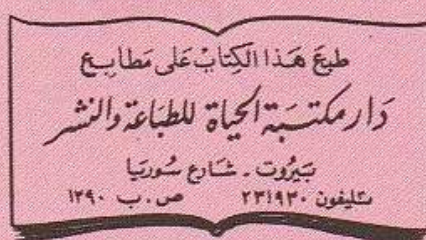 طبعَ هَذا الكِتابْ عَلى مَطابِع
دَار مكتَبة الحيَاة للطبَاعَة والنشر
بَيرُوت - شَارع سُوريَا
تليفون ٢٣١٩٣٠ ص. ب ١٣٩٠